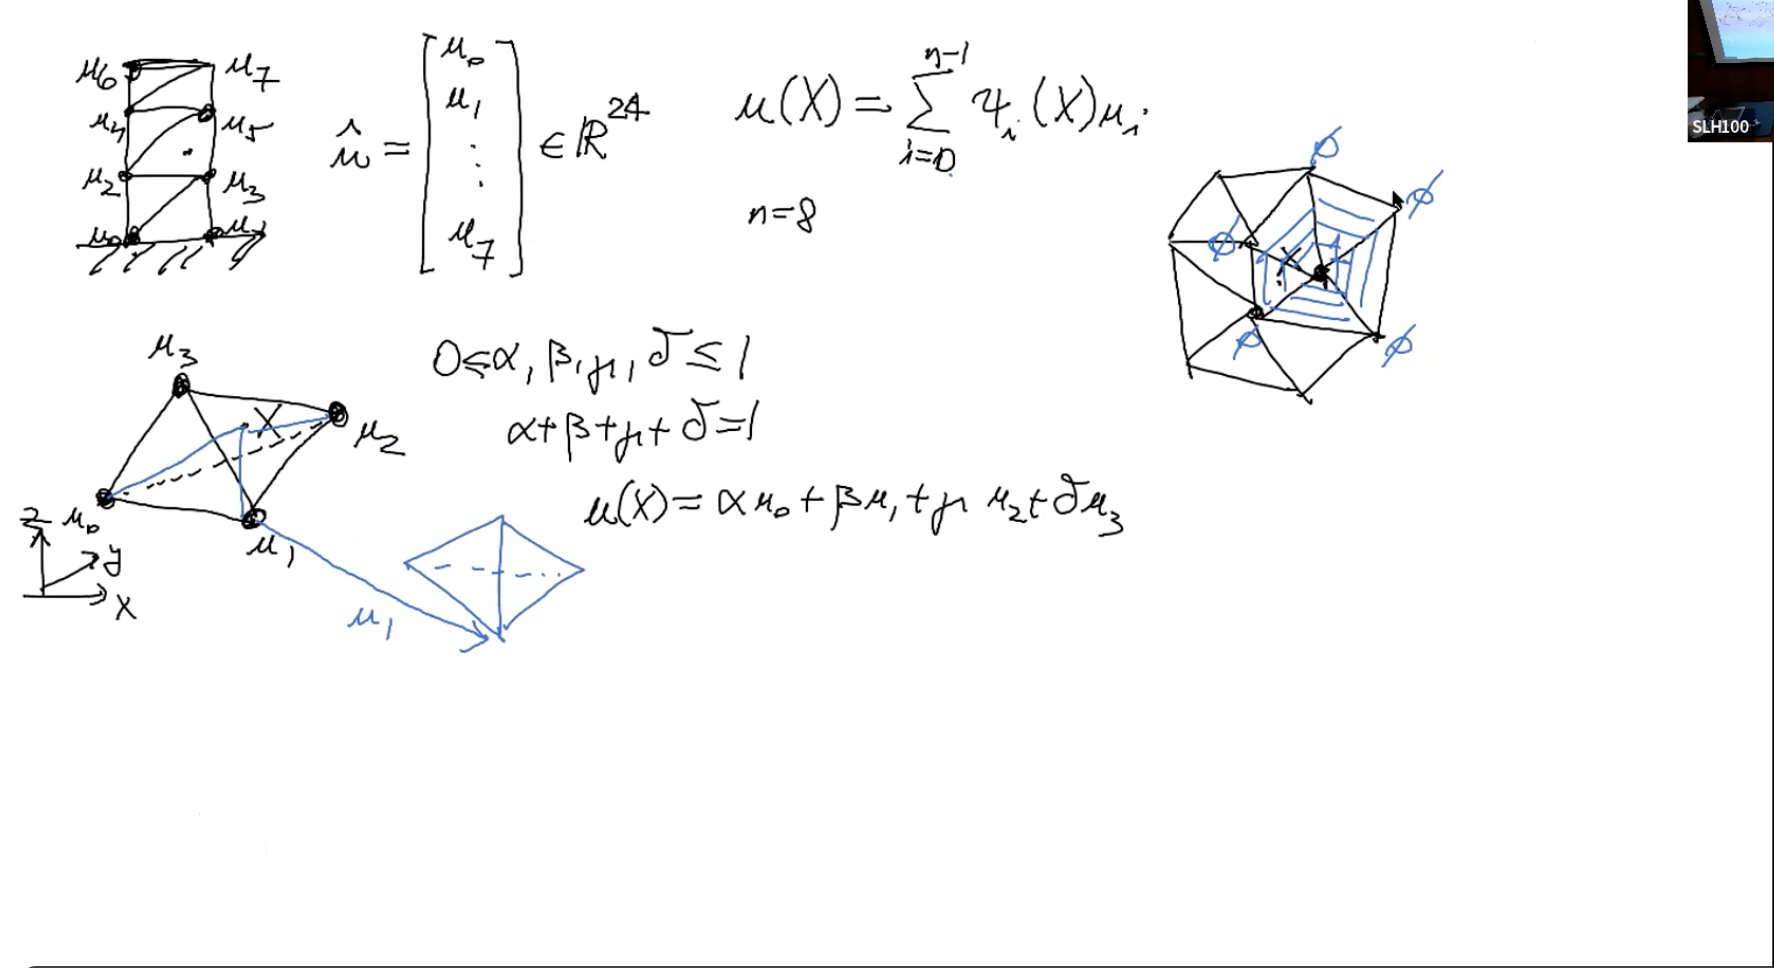 u₆ u₇
u₄ u₅
u₂ u₃
u₀ u₁
û = [u₀ u₁ ⋮ u₇] ∈ ℝ²⁴
u(X) = ∑_{i=0}^{n-1} Ψᵢ(X)uᵢ
n=8
SLH100
∅
∅
∅ 1
X
∅ ∅
u₃
X
u₂
u₀
u₁
z
y
x
u₁
0≤α, β, γ, δ ≤ 1
α+β+γ+δ=1
u(X) = αu₀ + βu₁ + γu₂ + δu₃